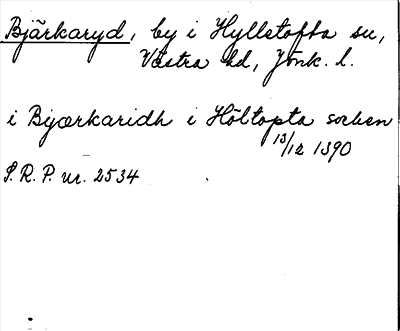 Bjärkaryd, by i Hyllstofta sn,
Västra hd, Jönk. l.
i Biærkaridh i Höltopta sochen
13/12 1390
S. R. P. nr. 2534